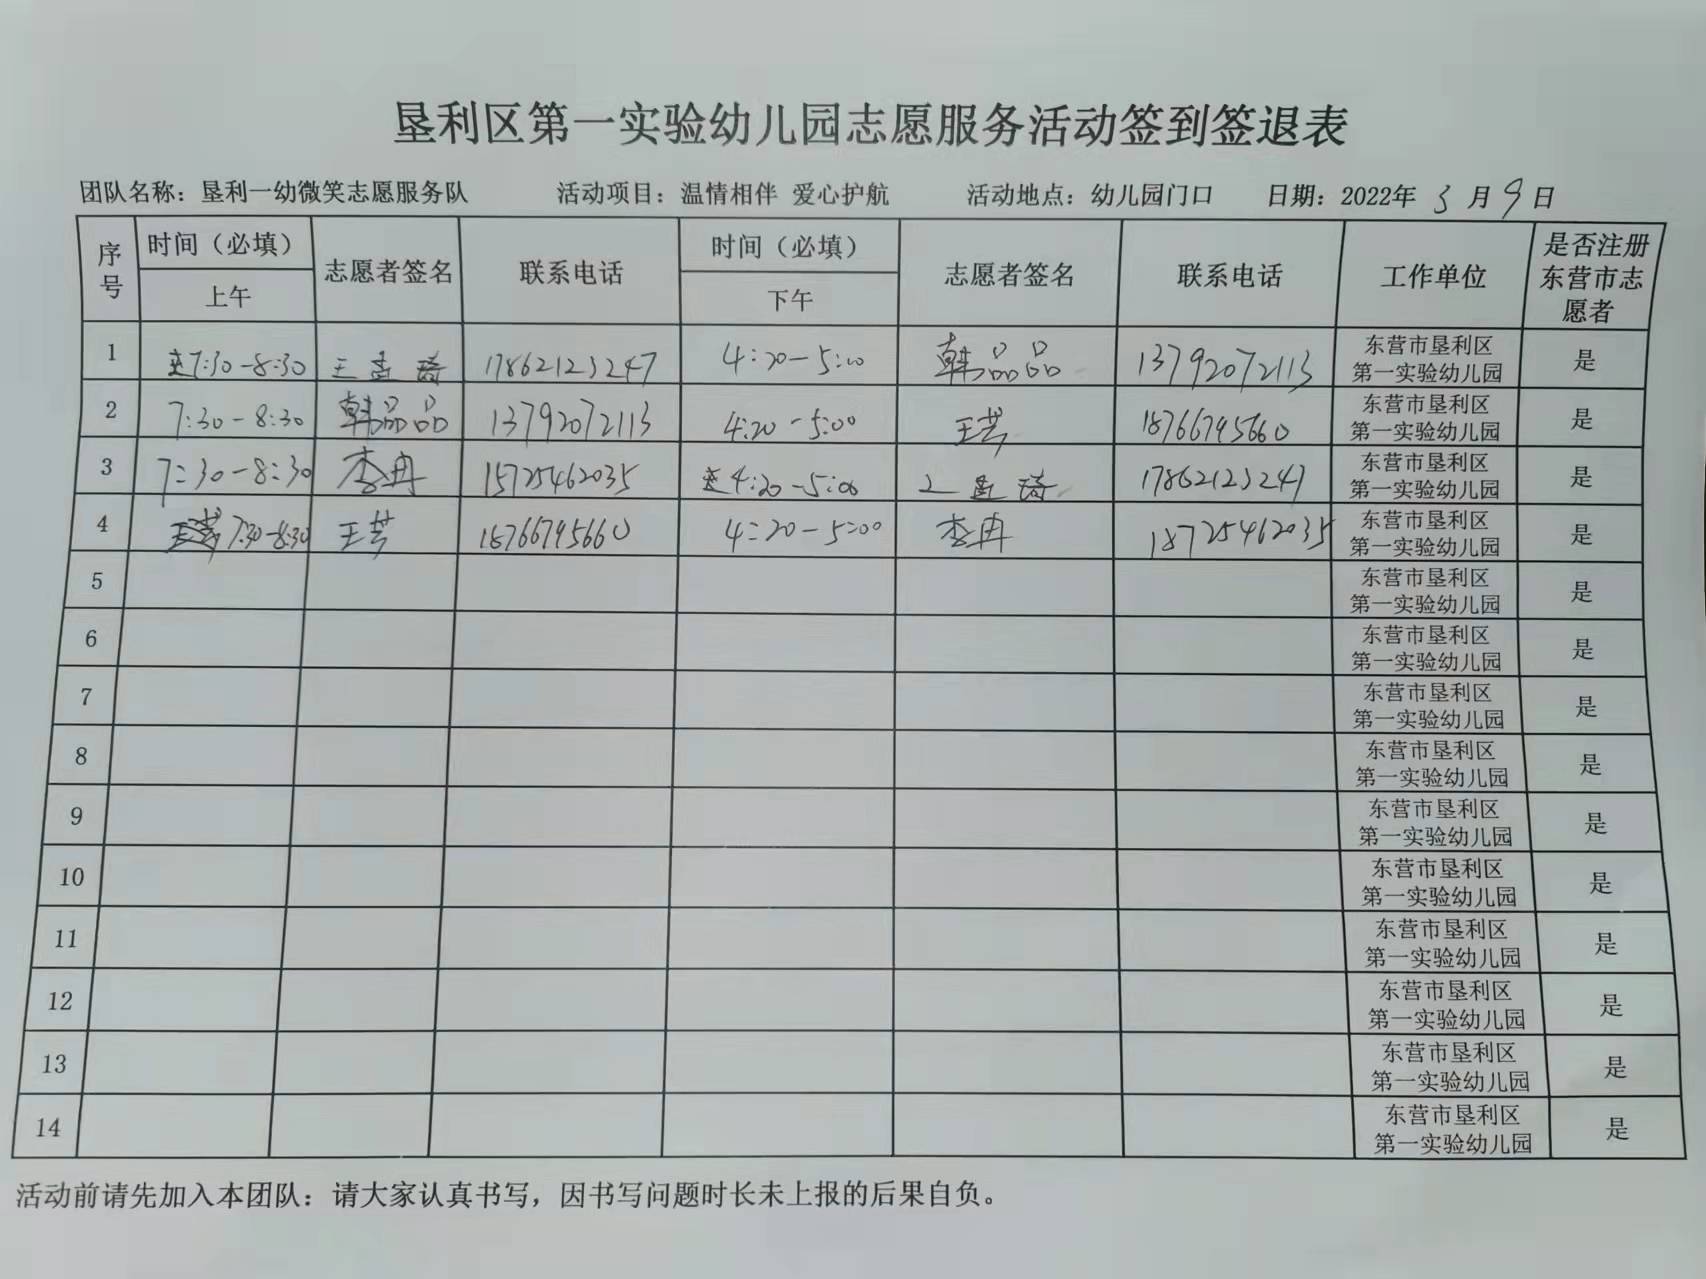 垦利区第一实验幼儿园志愿服务活动签到签退表
团队名称：垦利一幼微笑志愿服务队 活动项目：温情相伴 爱心护航 活动地点：幼儿园门口 日期：2022年 3 月 9 日
序号 时间（必填） 志愿者签名 联系电话 时间（必填） 志愿者签名 联系电话 工作单位 是否注册东营市志愿者
上午 下午
1 7:30-8:30 王孟琦 17862123247 4:20-5:00 韩品品 13792072113 东营市垦利区第一实验幼儿园 是
2 7:30-8:30 韩品品 13792072113 4:20-5:00 王芸 18766795660 东营市垦利区第一实验幼儿园 是
3 7:30-8:30 李冉 15725462035 4:20-5:00 王孟琦 17862123247 东营市垦利区第一实验幼儿园 是
4 7:30-8:30 王芸 18766795660 4:20-5:00 李冉 18725462035 东营市垦利区第一实验幼儿园 是
5 东营市垦利区第一实验幼儿园 是
6 东营市垦利区第一实验幼儿园 是
7 东营市垦利区第一实验幼儿园 是
8 东营市垦利区第一实验幼儿园 是
9 东营市垦利区第一实验幼儿园 是
10 东营市垦利区第一实验幼儿园 是
11 东营市垦利区第一实验幼儿园 是
12 东营市垦利区第一实验幼儿园 是
13 东营市垦利区第一实验幼儿园 是
14 东营市垦利区第一实验幼儿园 是
活动前请先加入本团队：请大家认真书写，因书写问题时长未上报的后果自负。